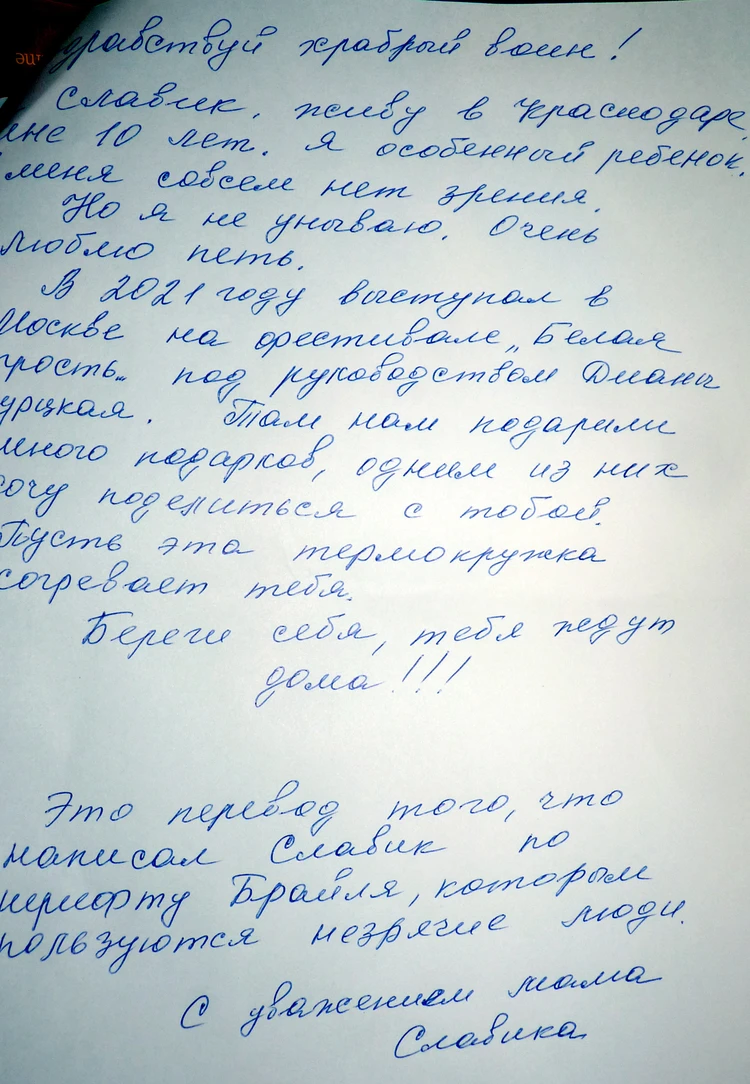 дравствуй храбрый воин!
Славик, живу в Краснодаре,
мне 10 лет. Я особенный ребенок,
меня совсем нет зрения.
Но я не унываю. Очень
люблю петь.
В 2021 году выступал в
Москве на фестивале „Белая
трость" под руководством Дианы
урцкая. Там нам подарили
много подарков, одним из них
хочу поделиться с тобой.
Пусть эта термокружка
согревает тебя.
Береги себя, тебя ждут
дома!!!
Это перевод того, что
написал Славик по
шрифту Брайля, которым
пользуются незрячие люди.
С уважением мама
Славика